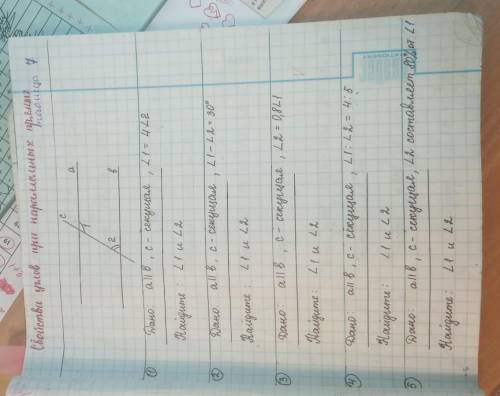 Свойства углов при параллельных прямых
Таблица 7
c
a
1
2
в
① Дано: a∥в, c - секущая, ∠1 = 4∠2
Найдите: ∠1 и ∠2
② Дано: a∥в, c - секущая, ∠1 - ∠2 = 30°
Найдите: ∠1 и ∠2
③ Дано: a∥в, c - секущая, ∠2 = 0,8∠1
Найдите: ∠1 и ∠2
④ Дано: a∥в, c - секущая, ∠1 : ∠2 = 4 : 5
Найдите: ∠1 и ∠2
⑤ Дано: a∥в, c - секущая, ∠2 составляет 80% от ∠1
Найдите: ∠1 и ∠2